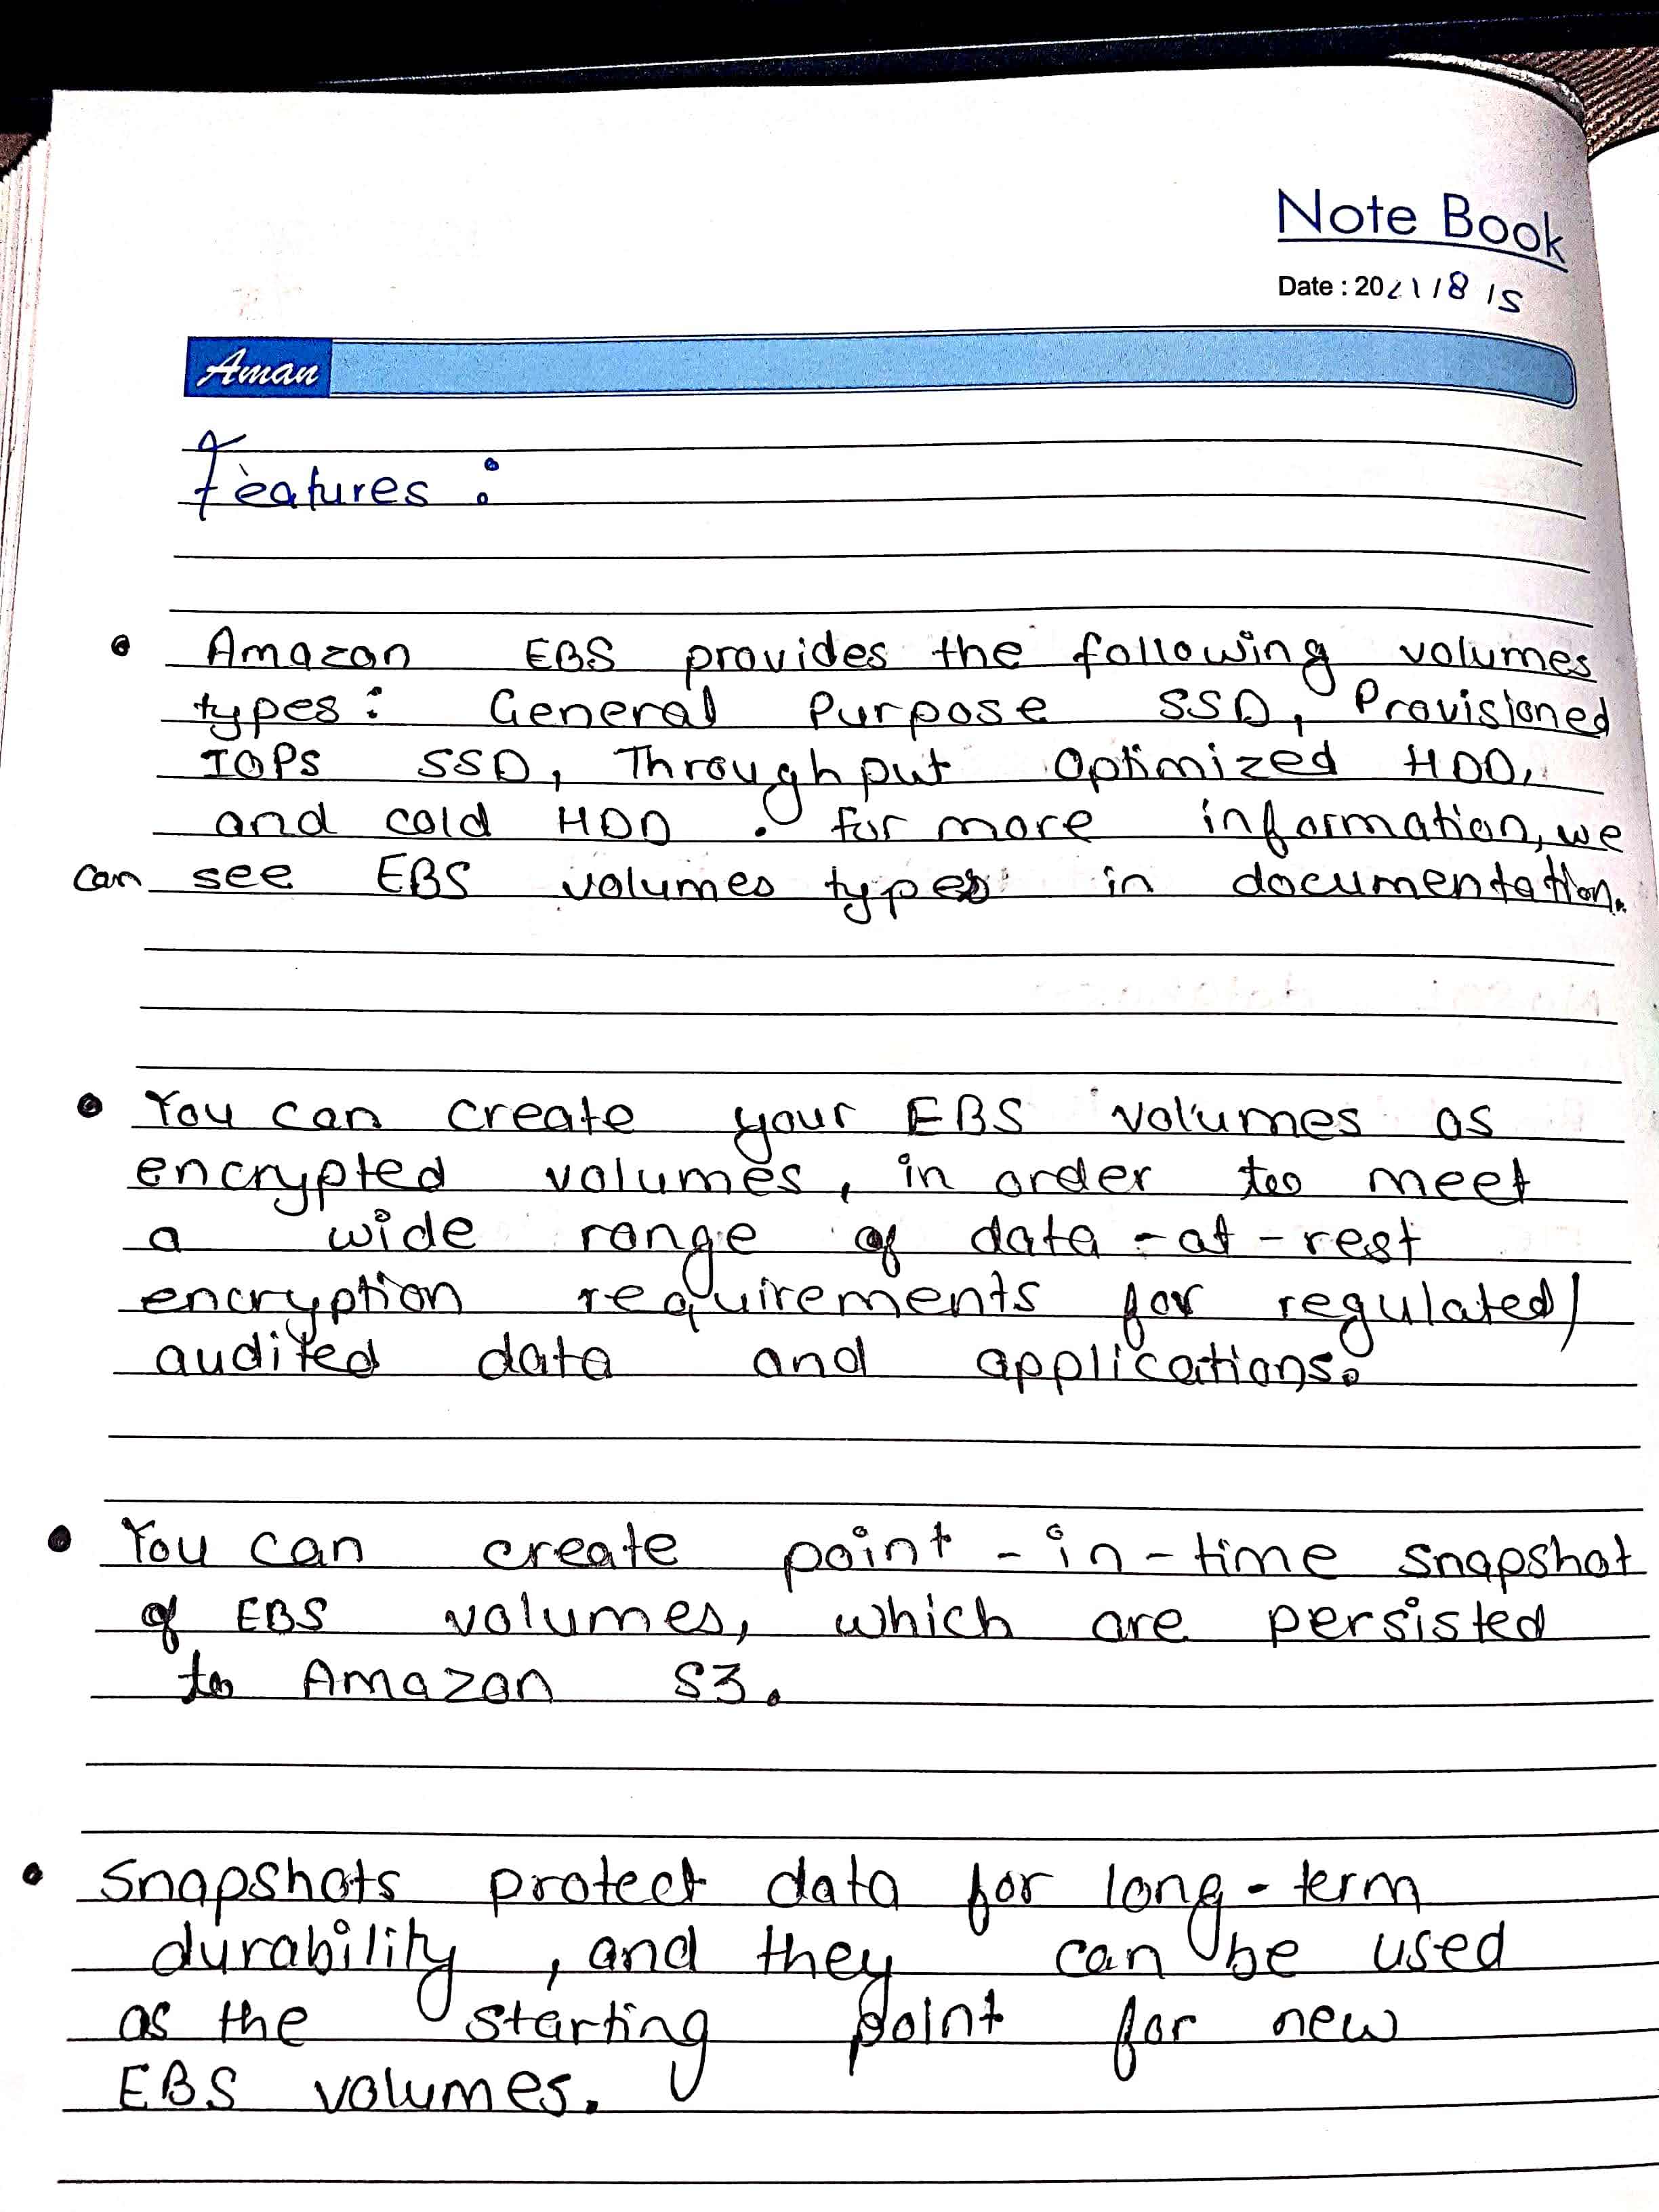 Note Book
Date : 2021/8/5
Aman
Features :
• Amazon EBS provides the following volumes
types: General Purpose SSD, Provisioned
IOPs SSD, Throughput Optimized HDD,
and cold HDD . for more information, we
can see EBS volumes types in documentation.
• You can create your EBS volumes as
encrypted volumes, in order to meet
a wide range of data-at-rest
encryption requirements for regulated/
audited data and applications.
• You can create point-in-time snapshot
of EBS volumes, which are persisted
to Amazon S3.
• Snapshots protect data for long-term
durability, and they can be used
as the starting point for new
EBS volumes.